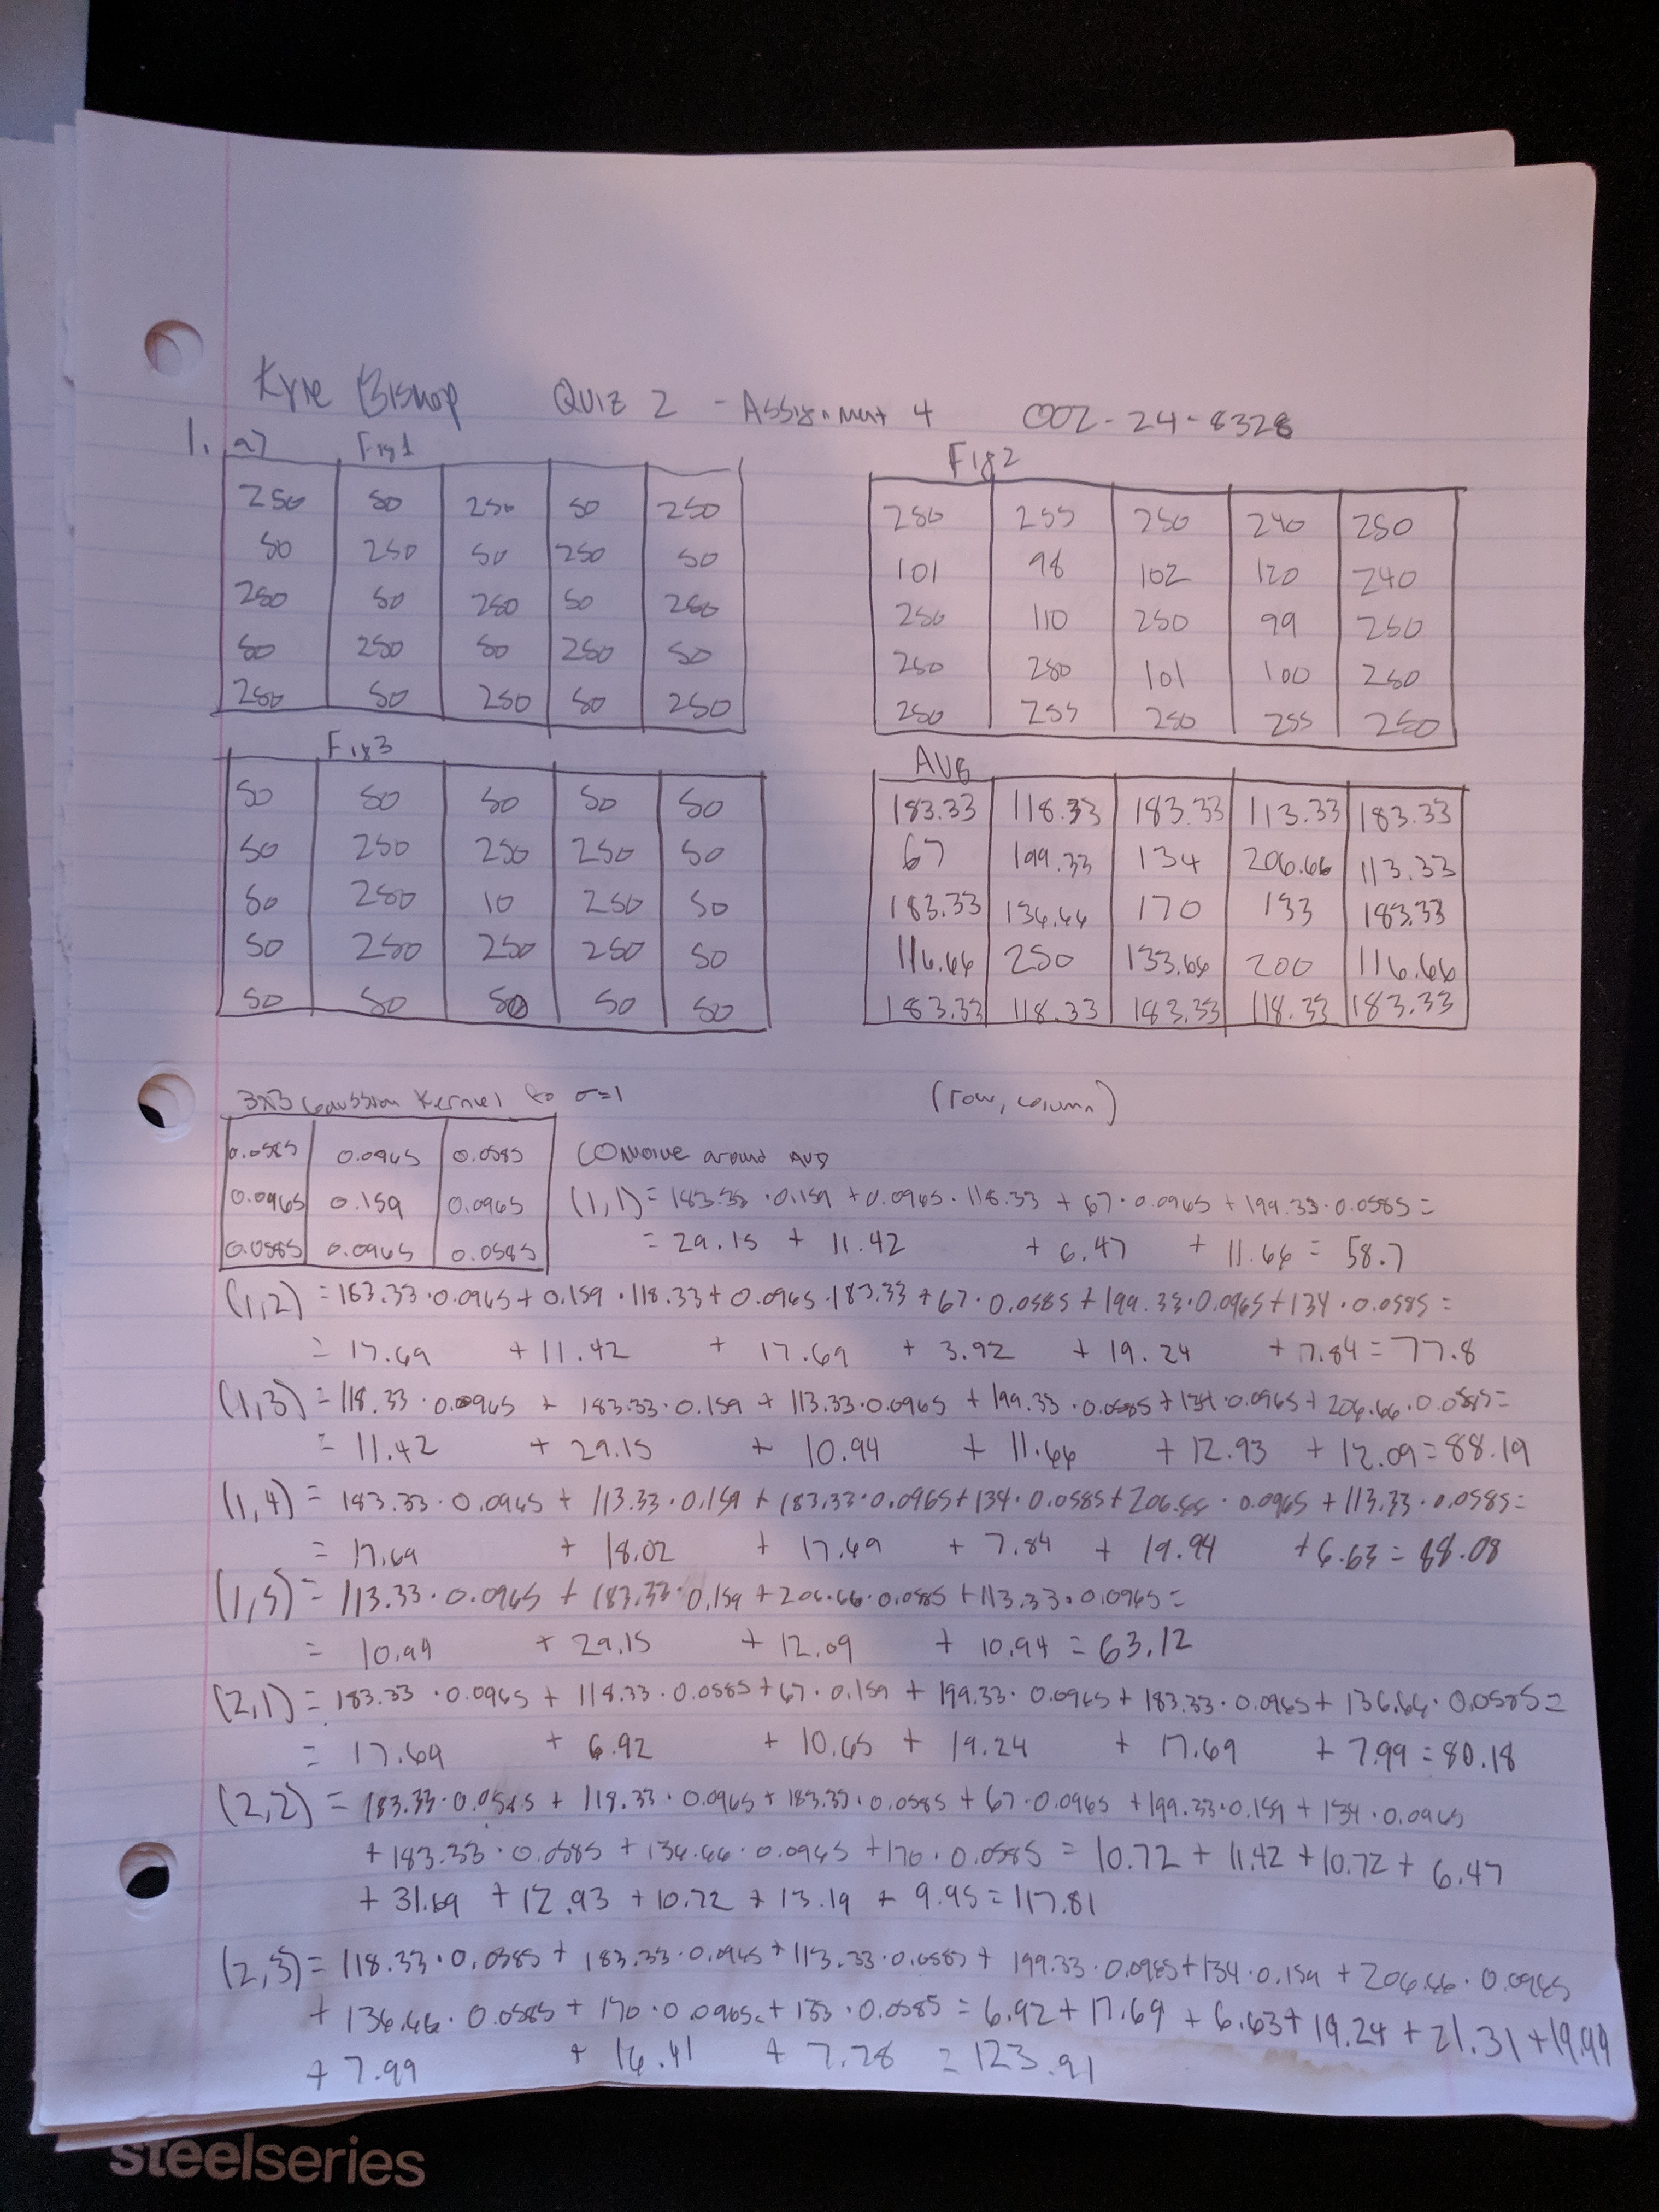 Kyle Bishop Quiz 2 - Assignment 4 002-24-8328
1. a) Fig1 Fig2
250 50 250 50 250
50 250 50 250 50
250 50 250 50 250
50 250 50 250 50
250 50 250 50 250
250 255 250 240 250
101 98 102 120 240
250 110 250 99 250
250 250 101 100 250
250 255 250 255 250
Fig3
50 50 50 50 50
50 250 250 250 50
50 250 10 250 50
50 250 250 250 50
50 50 50 50 50
AVG
183.33 118.33 183.33 113.33 183.33
67 199.33 134 206.66 113.33
183.33 136.66 170 133 183.33
116.66 250 133.66 200 116.66
183.33 118.33 183.33 118.33 183.33
3x3 Gaussian Kernel σ=1 (row, column)
0.0585 0.0965 0.0585
0.0965 0.159 0.0965
0.0585 0.0965 0.0585
Convolve around AVG
(1,1) = 183.33 · 0.159 + 0.0965 · 118.33 + 67 · 0.0965 + 199.33 · 0.0585 =
= 29.15 + 11.42 + 6.47 + 11.66 = 58.7
(1,2) = 183.33 · 0.0965 + 0.159 · 118.33 + 0.0965 · 183.33 + 67 · 0.0585 + 199.33 · 0.0965 + 134 · 0.0585 =
= 17.69 + 11.42 + 17.69 + 3.92 + 19.24 + 7.84 = 77.8
(1,3) = 118.33 · 0.0965 + 183.33 · 0.159 + 113.33 · 0.0965 + 199.33 · 0.0585 + 134 · 0.0965 + 206.66 · 0.0585 =
= 11.42 + 29.15 + 10.94 + 11.66 + 12.93 + 12.09 = 88.19
(1,4) = 183.33 · 0.0965 + 113.33 · 0.159 + 183.33 · 0.0965 + 134 · 0.0585 + 206.66 · 0.0965 + 113.33 · 0.0585 =
= 17.69 + 18.02 + 17.69 + 7.84 + 19.94 + 6.63 = 88.08
(1,5) = 113.33 · 0.0965 + 183.33 · 0.159 + 206.66 · 0.0585 + 113.33 · 0.0965 =
= 10.94 + 29.15 + 12.09 + 10.94 = 63.12
(2,1) = 183.33 · 0.0965 + 118.33 · 0.0585 + 67 · 0.159 + 199.33 · 0.0965 + 183.33 · 0.0965 + 136.66 · 0.0585 =
= 17.69 + 6.92 + 10.65 + 19.24 + 17.69 + 7.99 = 80.18
(2,2) = 183.33 · 0.0585 + 118.33 · 0.0965 + 183.33 · 0.0585 + 67 · 0.0965 + 199.33 · 0.159 + 134 · 0.0965
+ 183.33 · 0.0585 + 136.66 · 0.0965 + 170 · 0.0585 = 10.72 + 11.42 + 10.72 + 6.47
+ 31.69 + 12.93 + 10.72 + 13.19 + 9.95 = 117.81
(2,3) = 118.33 · 0.0585 + 183.33 · 0.0965 + 113.33 · 0.0585 + 199.33 · 0.0965 + 134 · 0.159 + 206.66 · 0.0965
+ 136.66 · 0.0585 + 170 · 0.0965 + 133 · 0.0585 = 6.92 + 17.69 + 6.63 + 19.24 + 21.31 + 19.94
+ 7.99 + 16.41 + 7.78 = 123.91
steelseries